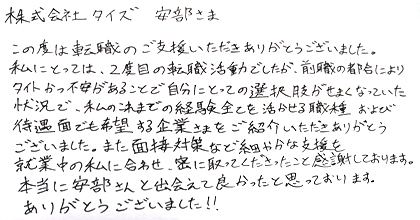 株式会社タイズ 安部さま
この度は転職のご支援いただきありがとうございました。
私にとっては、2度目の転職活動でしたが、前職の都合により
タイトかつ不安があることで自分にとっての選択肢がせまくなっていた
状況で、私のこれまでの経験全てを活かせる職種および
待遇面でも希望する企業さまをご紹介いただきありがとう
ございました。また面接対策など細やかな支援を
就業中の私に合わせ、密に取ってくださったこと感謝しております。
本当に安部さんと出会えて良かったと思っております。
ありがとうございました!!